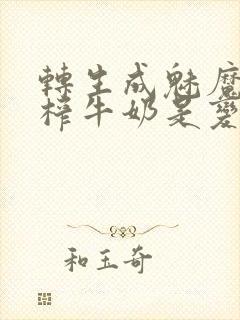 轉生成魅魔
榨牛奶是愛
和玉奇